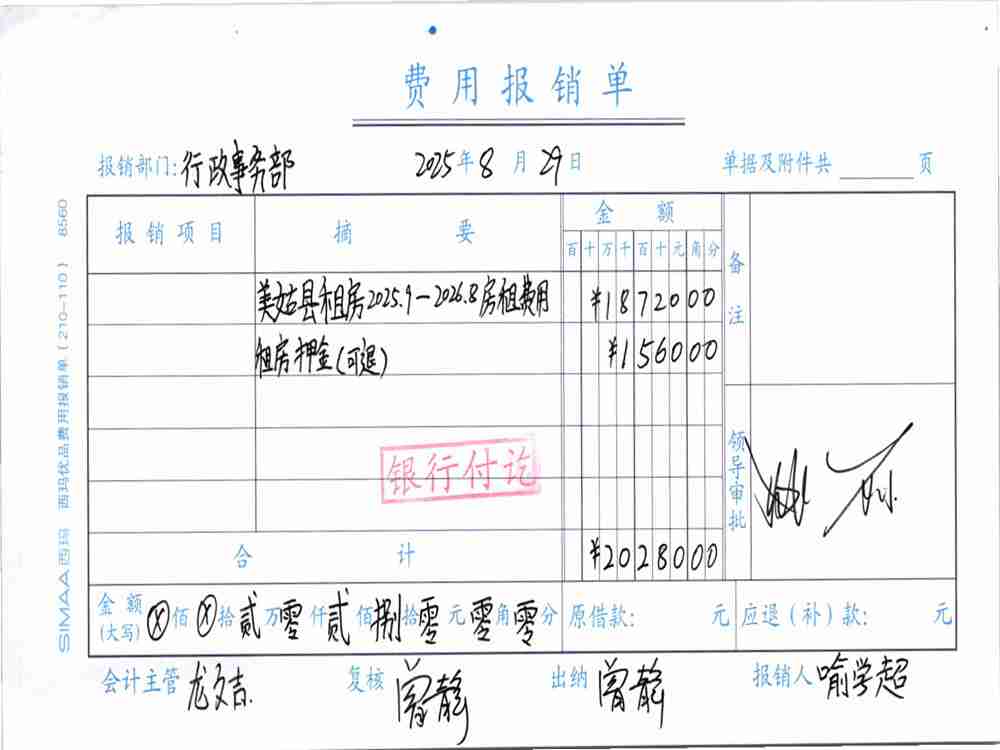 费用报销单
报销部门:行政事务部 2025年8月29日 单据及附件共 页
报销项目 摘要 金额 备注
百十万千百十元角分
美姑县租房2025.9-2026.8房租费用 ¥1872000
租房押金(可退) ¥156000
银行付讫
领导审批
合计 ¥2028000
金额(大写) ⓧ佰ⓧ拾贰万零仟贰佰捌拾零元零角零分 原借款: 元 应退(补)款: 元
会计主管 龙文吉 复核 曾静 出纳 曾静 报销人 喻学超
SIMAA西玛 西玛优品费用报销单(210-110) 8560